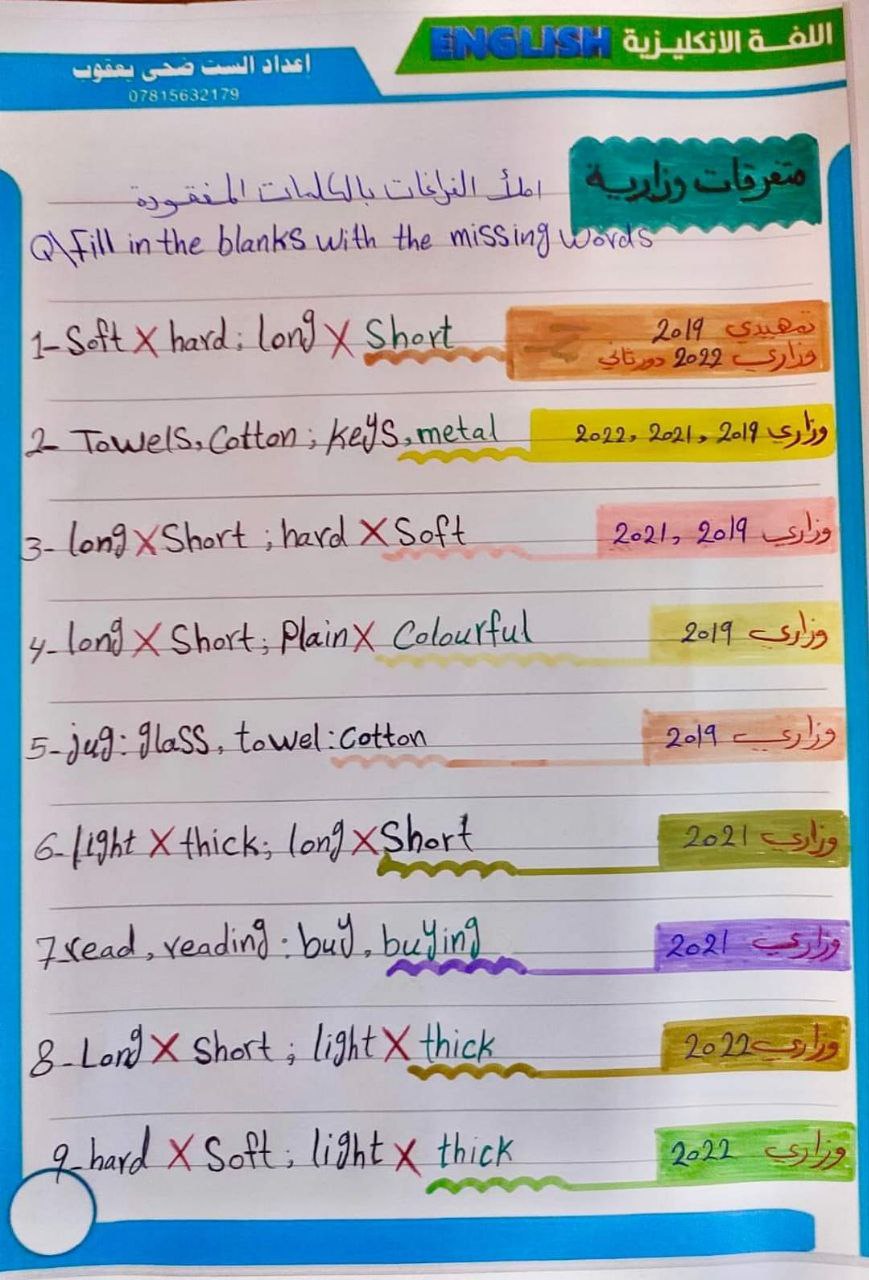 اللغة الانكليزية ENGLISH
اعداد الست ضحى يعقوب
07815632179
متفرقات وزارية
املأ الفراغات بالكلمات المفقودة
Q\ Fill in the blanks with the missing words
1- Soft X hard ; long X Short تمهيدي 2019
وزاري 2022 دور ثاني
2- Towels, Cotton ; keys, metal وزاري 2019, 2021, 2022
3- long X Short ; hard X Soft وزاري 2019, 2021
4- long X Short ; Plain X Colourful وزاري 2019
5- jug : glass, towel : cotton وزاري 2019
6- light X thick ; long X Short وزاري 2021
7 read, reading : buy, buying وزاري 2021
8- Long X Short ; light X thick وزاري 2022
9- hard X Soft ; light X thick وزاري 2022